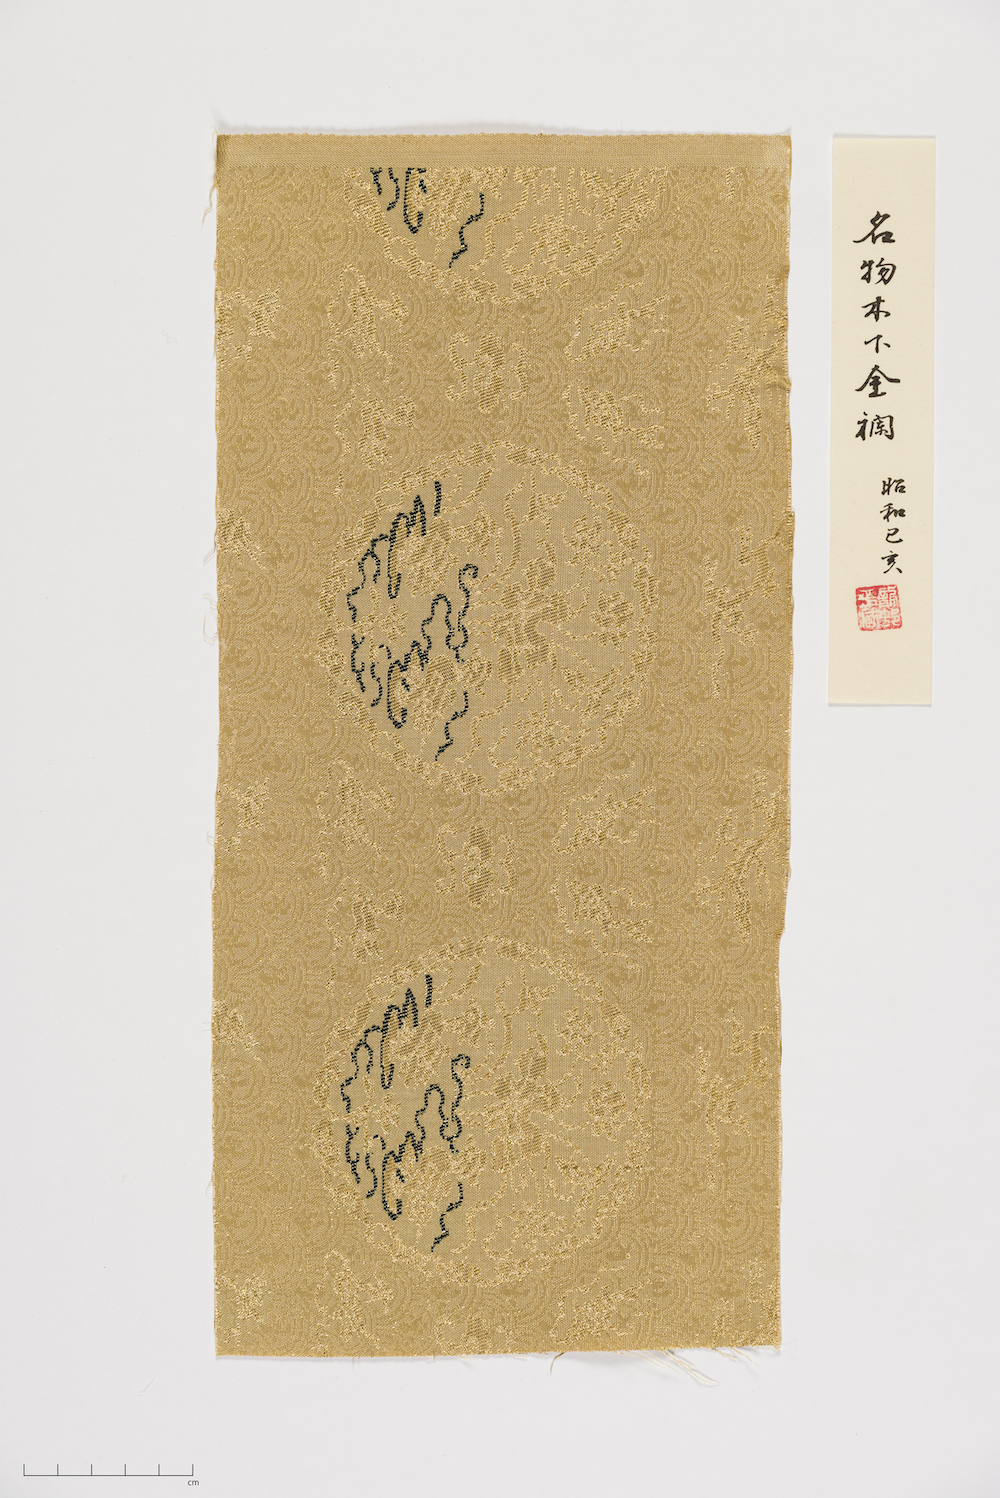 名物木下金襴
昭和己亥
cm